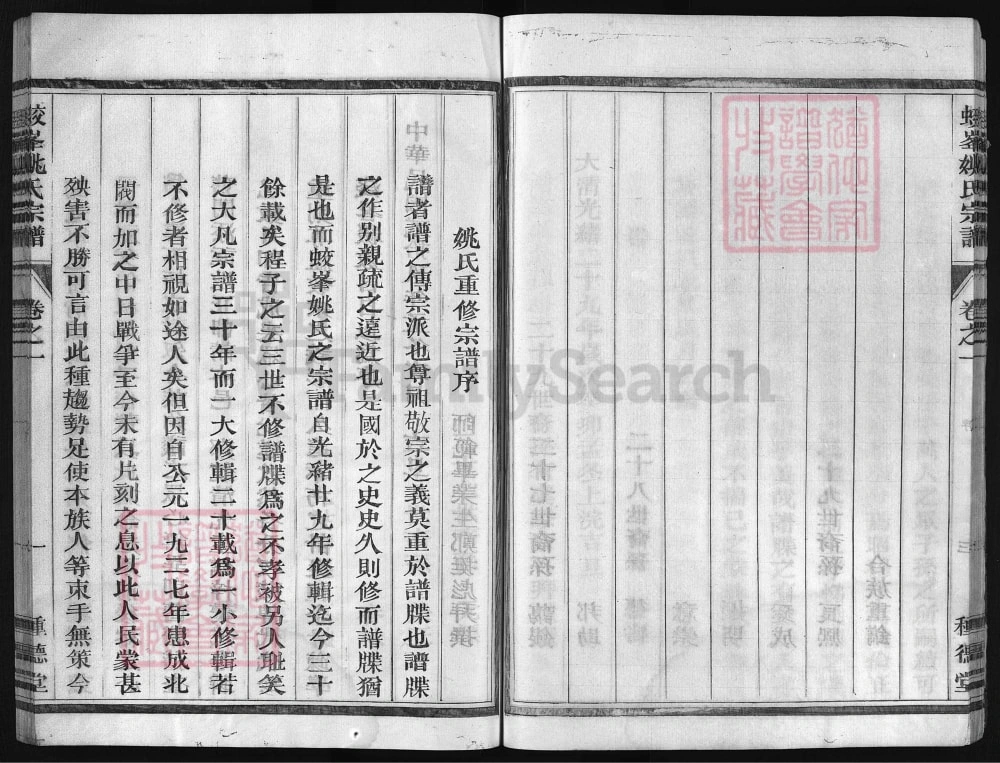 蛟峯姚氏宗譜
卷之一
三
種德堂
姚氏重修宗譜序
譜者譜之傳宗派也尊祖敬宗之義莫重於譜牒也譜牒
之作別親疏之遠近也是國於之史史久則修而譜牒猶
是也而蛟峯姚氏之宗譜自光豬廿九年修輯迄今三十
餘載矣程子之云三世不修譜牒爲之不孝被另人耻笑
之大凡宗譜三十年而一大修輯二十載爲一小修輯若
不修者相視如途人矣但因自公元一九三七年患成北
閥而加之中日戰爭至今未有片刻之息以此人民蒙甚
殃害不勝可言由此種趨勢足使本族人等束手無策今
蛟峯姚氏宗譜
卷之一
一
種德堂
FamilySearch